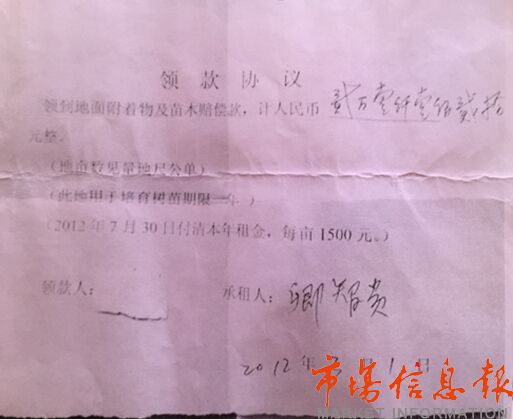 领款协议
领到地面附着物及苗木赔偿款，计人民币 贰万壹仟壹佰贰拾
元整。
（地亩数见量地尺公单）
（此地用于培育树苗期限一年）
（2012年7月30日付清本年租金，每亩1500元。）
领款人： 承租人：卿智贵
2012年3月1日
市场信息報
MARKET INFORMATION NEWSPAPER